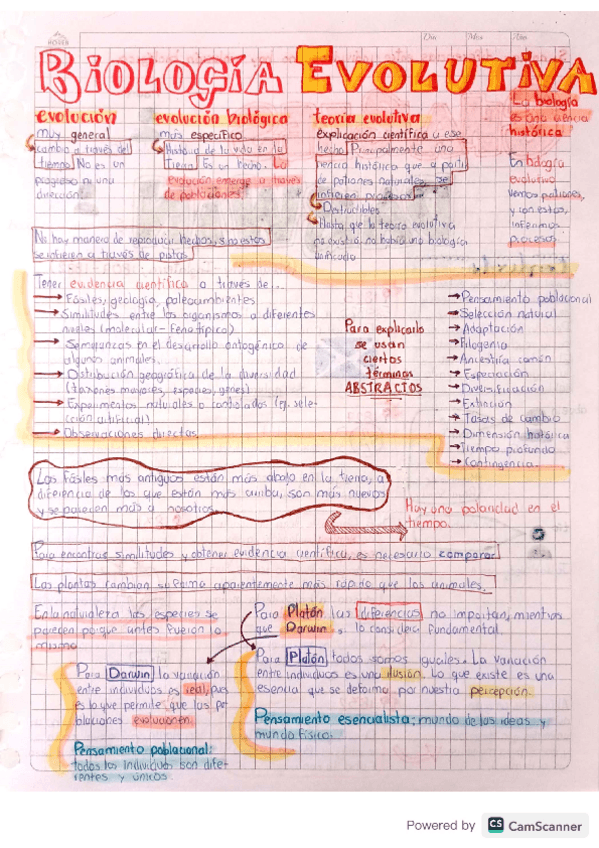 Biología Evolutiva
evolución
Muy general
Cambio a través del
tiempo. No es un
progreso ni una
dirección.
evolución biológica
más específico
Historia de la vida en la
Tierra. Es un hecho. La
evolución emerge a través
de poblaciones
teoría evolutiva
explicación científica a ese
hecho. Principalmente una
ciencia histórica que a partir
de patrones naturales, se
infieren procesos.
Hasta que la teoría evolutiva
no existió, no había una biología
unificada
La biología
es una ciencia
histórica
En biología
evolutiva
vemos patrones,
y con estos,
inferimos
procesos.
No hay manera de reproducir hechos, sino estos
se infieren a través de pistas
Tener evidencia científica a través de...
Fósiles, geología, paleoambientes
Similitudes entre los organismos a diferentes
niveles (molecular - Fenotípico)
Semejanzas en el desarrollo ontogénico de
algunos animales.
Distribución geográfica de la diversidad
(taxones mayores, especies, genes)
Experimentos naturales o controlados (ej. sele-
cción artificial)
Observaciones directas.
Para explicarlo
se usan
ciertos
términos
ABSTRACTOS
Pensamiento poblacional
Selección natural
Adaptación
Filogenia
Ancestría común
Especiación
Diversificación
Extinción
Tasas de cambio
Dimensión histórica
Tiempo profundo
Contingencia.
Los fósiles más antiguos están más abajo en la tierra, a
diferencia de los que están más arriba, son más nuevos
y se parecen más a nosotros.
Hay una polaridad en el
tiempo.
Para encontrar similitudes y obtener evidencia científica, es necesario comparar
Las plantas cambian su forma aparentemente más rápido que los animales.
En la naturaleza las especies se
parecen porque antes fueron lo
mismo
Para Platón las diferencias no importan, mientras
que Darwin, lo considera fundamental.
Para Darwin la variación
entre individuos es real, pues
es lo que permite que las po-
blaciones evolucionen.
Pensamiento poblacional:
todos los individuos son dife-
rentes y únicos
Para Platón todos somos iguales. La variación
entre individuos es una ilusión. Lo que existe es una
esencia que se deforma por nuestra percepción.
Pensamiento esencialista: mundo de las ideas y
mundo físico.
Powered by CS CamScanner